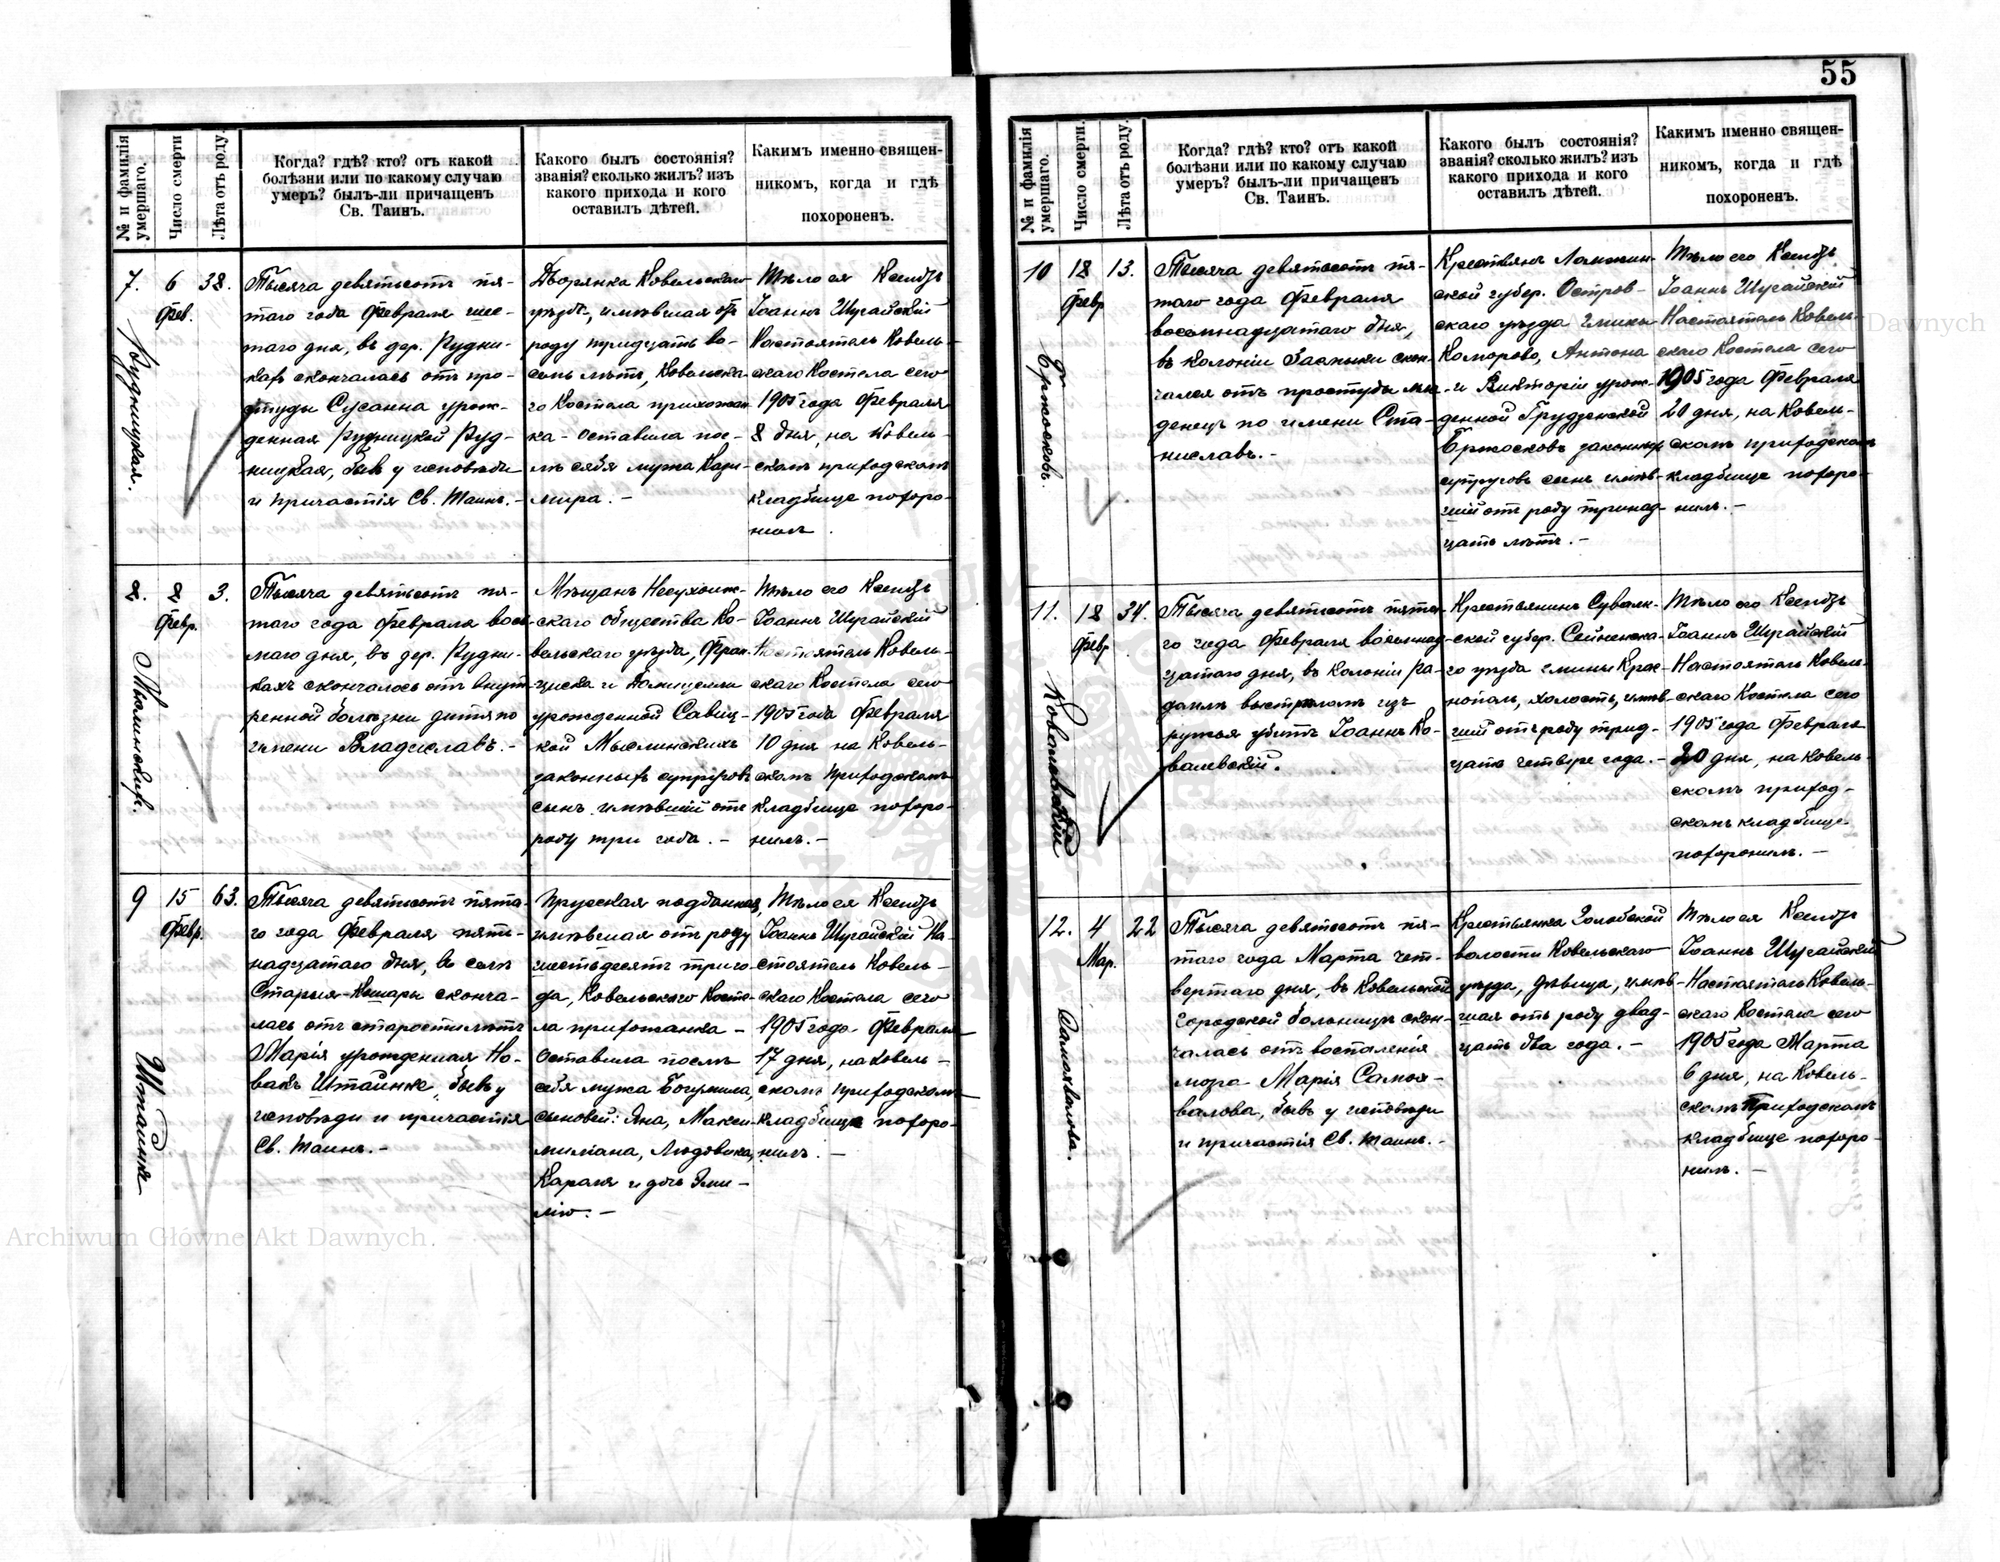 55
№ и фамилія умершаго.
Число смерти
Лѣта отъ роду.
Когда? гдѣ? кто? отъ какой
болѣзни или по какому случаю
умеръ? былъ-ли причащенъ
Св. Таинъ.
Какого былъ состоянія?
званія? сколько жилъ? изъ
какого прихода и кого
оставилъ дѣтей.
Какимъ именно священ-
никомъ, когда и гдѣ
похороненъ.
7.
Рудницкая.
6
Фев.
38.
Тысяча девятьсотъ пя-
таго года Февраля шес-
таго дня, въ дер. Рудни-
кахъ скончалась отъ про-
студы Сусанна урож-
денная Рудницкой Руд-
ницкая, бывъ у исповѣди
и причастія Св. Таинъ. -
Дворянка Ковельскаго
уѣзда, имѣвшая отъ
роду тридцать во-
семь лѣтъ, Ковельска-
го Костела прихожан-
ка - оставила пос-
лѣ себя мужа Кази-
мира. -
Тѣло ея Ксендзъ
Іоаннъ Шугайскій
Настоятель Ковель-
скаго Костела сего
1905 года Февраля
8 дня, на Ковель-
скомъ приходскомъ
кладбище похоро-
нилъ.
8.
8
Февр.
3.
Тысяча девятьсотъ пя-
таго года Февраля вось-
маго дня, въ дер. Рудни-
кахъ скончалось отъ внут-
ренной болѣзни дитя по
имени Владиславъ. -
Мѣщанъ Несухоиж-
скаго общества Ко-
вельскаго уѣзда, Фран-
циска и Домицелли
урожденной Савиц-
кой Мыслинскихъ
законныхъ супруговъ
сынъ имѣвшій отъ
роду три года. -
Тѣло его Ксендзъ
Іоаннъ Шугайскій
Настоятель Ковель-
скаго Костела сего
1905 года Февраля
10 дня на Ковель-
скомъ приходскомъ
кладбище похоро-
нилъ. -
9
Штайнке
15
Февр.
63.
Тысяча девятьсотъ пята-
го года Февраля пят-
надцатаго дня, въ селѣ
Старыя-Кошары сконча-
лась отъ старости лѣтъ
Марія урожденная Но-
вакъ Штайнке, бывъ у
исповѣди и причастія
Св. Таинъ. -
Прусская подданная,
имѣвшая отъ роду
шестьдесятъ три го-
да, Ковельскаго Косте-
ла прихожанка -
Оставила послѣ
себя мужа Богумила,
сыновей: Яна, Макси-
миліана, Людовика,
Кароля и дочь Эми-
лію. -
Тѣло ея Ксендзъ
Іоаннъ Шугайскій На-
стоятель Ковель-
скаго Костела сего
1905 года Февраля
17 дня, на Ковель-
скомъ приходскомъ
кладбище похоро-
нилъ. -
№ и фамилія умершаго.
Число смерти.
Лѣта отъ роду.
Когда? гдѣ? кто? отъ какой
болѣзни или по какому случаю
умеръ? былъ-ли причащенъ
Св. Таинъ.
Какого былъ состоянія?
званія? сколько жилъ? изъ
какого прихода и кого
оставилъ дѣтей.
Какимъ именно священ-
никомъ, когда и гдѣ
похороненъ.
10
18
Февр
13.
Тысяча девятьсотъ пя-
таго года Февраля
восемнадцатаго дня,
въ колоніи скон-
чался отъ простуды мла-
денецъ по имени Ста-
ниславъ. -
Крестьянъ Ломжин-
ской губер. Остров-
скаго уѣзда гмины
Коморово, Антона
и Викторіи урож-
денной Грудзинской
законныхъ
супруговъ сынъ имѣв-
шій отъ роду тринад-
цать лѣтъ. -
Тѣло его Ксендзъ
Іоаннъ Шугайскій
Настоятель Ковель-
скаго Костела сего
1905 года Февраля
20 дня, на Ковель-
скомъ приходскомъ
кладбище похоро-
нилъ. -
11.
Ковалевскій
18
Февр
34.
Тысяча девятьсотъ пята-
го года Февраля восемнад-
цатаго дня, въ колоніи Ра-
выстреломъ изъ
ружья убитъ Іоаннъ Ко-
валевскій.
Крестьянинъ Сувалк-
ской губер. Сейненска-
го уѣзда гмины Крас-
нополь, холостъ, имѣв-
шій отъ роду трид-
цать четыре года. -
Тѣло его Ксендзъ
Іоаннъ Шугайскій
Настоятель Ковель-
скаго Костела сего
1905 года Февраля
20 дня, на Ковель-
скомъ приход-
скомъ кладбище
похоронилъ. -
12.
Самохвалова.
4
Мар.
22
Тысяча девятьсотъ пя-
таго года Марта чет-
вертаго дня, въ Ковельской
городской больницѣ скон-
чалась отъ воспаленія
мозга Марія Самох-
валова, бывъ у исповѣди
и причастія Св. Таинъ. -
Крестьянка Голобской
волости Ковельскаго
уѣзда, дѣвица, имѣв-
шая отъ роду двад-
цать два года. -
Тѣло ея Ксендзъ
Іоаннъ Шугайскій
Настоятель Ковель-
скаго Костела сего
1905 года Марта
6 дня, на Ковель-
скомъ Приходскомъ
кладбище похоро-
нилъ. -
Archiwum Główne Akt Dawnych
Główne Akt Dawnych